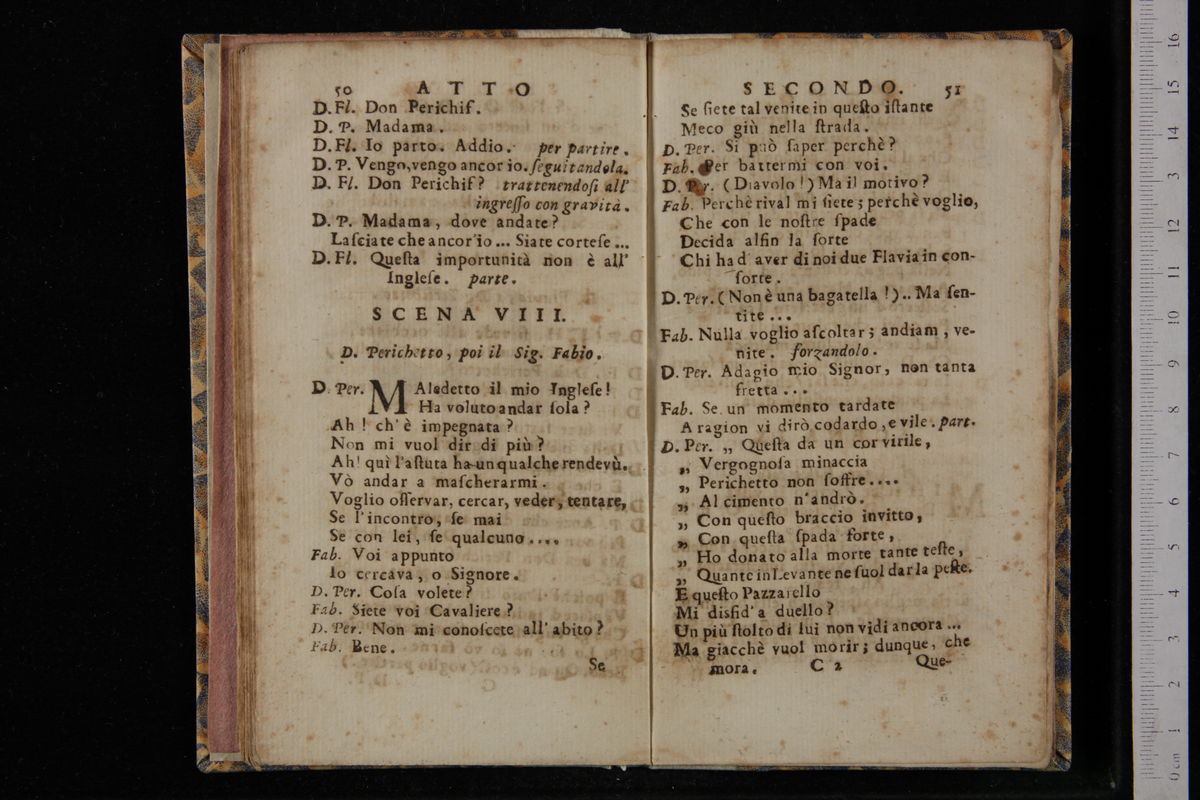 50 ATTO
D. Fl. Don Perichiſ.
D. P. Madama.
D. Fl. Io parto. Addio. per partire.
D. P. Vengo, vengo ancor io. ſeguitandola.
D. Fl. Don Perichiſ? trattenendoſi all'
ingreſſo con gravità.
D. P. Madama, dove andate?
Laſciate che ancor'io ... Siate corteſe ...
D. Fl. Queſta importunità non è all'
Ingleſe. parte.
SCENA VIII.
D. Perichetto, poi il Sig. Fabio.
D. Per. MAledetto il mio Ingleſe!
Ha voluto andar ſola?
Ah! ch'è impegnata?
Non mi vuol dir di più?
Ah! quì l'aſtuta ha un qualche rendevù.
Vò andar a maſcherarmi.
Voglio oſſervar, cercar, veder, tentare,
Se l'incontro, ſe mai
Se con lei, ſe qualcuno ....
Fab. Voi appunto
Io cercava, o Signore.
D. Per. Coſa volete?
Fab. Siete voi Cavaliere?
D. Per. Non mi conoſcete all'abito?
Fab. Bene.
Se
SECONDO. 51
Se ſiete tal venite in queſto iſtante
Meco giù nella ſtrada.
D. Per. Si può ſaper perchè?
Fab. Per battermi con voi.
D. Per. (Diavolo!) Ma il motivo?
Fab. Perchè rival mi ſiete; perchè voglio,
Che con le noſtre ſpade
Decida alfin la ſorte
Chi ha d'aver di noi due Flavia in con-
ſorte.
D. Per. (Non è una bagatella!).. Ma ſen-
tite ...
Fab. Nulla voglio aſcoltar; andiam, ve-
nite. forzandolo.
D. Per. Adagio mio Signor, non tanta
fretta ...
Fab. Se un momento tardate
A ragion vi dirò codardo, e vile. part.
D. Per. „ Queſta da un cor virile,
„ Vergognoſa minaccia
„ Perichetto non ſoffre....
„ Al cimento n'andrò.
„ Con queſto braccio invitto,
„ Con queſta ſpada forte,
„ Ho donato alla morte tante teſte,
„ Quante in Levante ne ſuol dar la peſte.
E queſto Pazzarello
Mi disfid'a duello?
Un più ſtolto di lui non vidi ancora ...
Ma giacchè vuol morir; dunque, che
mora. C 2 Que-
16
15
14
13
12
11
10
9
8
7
6
5
4
3
2
1
0 cm